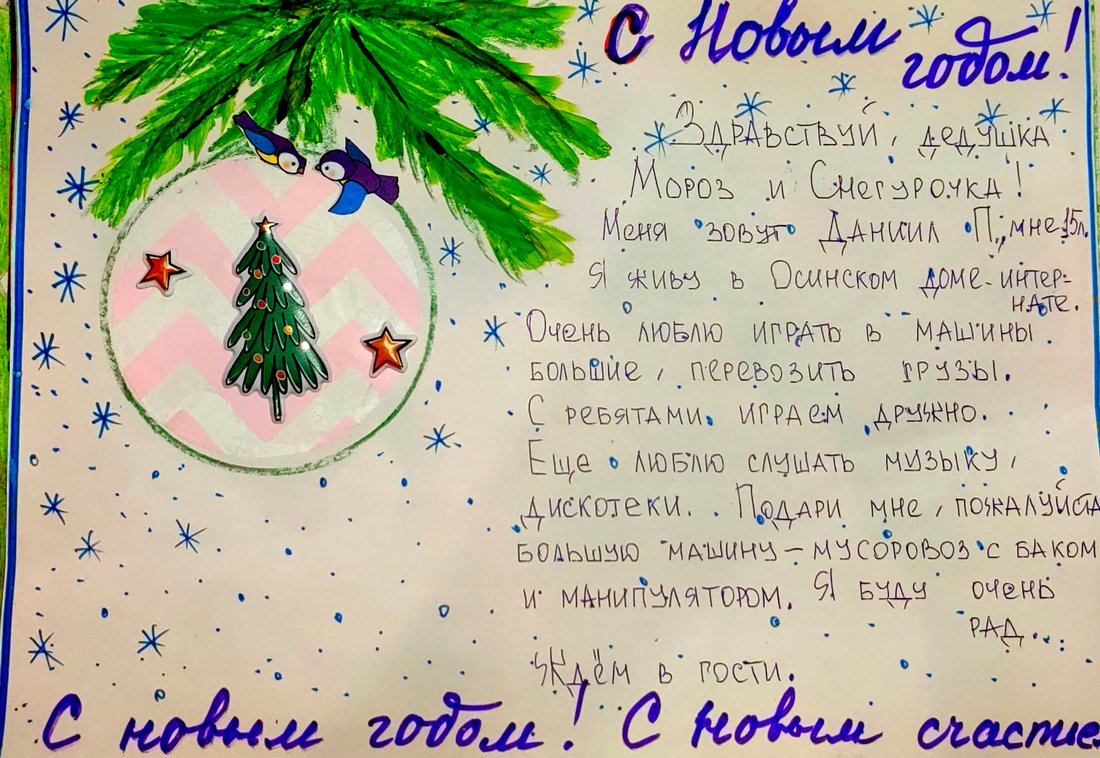 С Новым
годом!
Здравствуй, дедушка
Мороз и Снегурочка!
Меня зовут Даниил П., мне 15л.
Я живу в Осинском доме-интер-
нате.
Очень люблю играть в машины
большие, перевозить грузы.
С ребятами играем дружно.
Еще люблю слушать музыку,
дискотеки. Подари мне, пожалуйста
большую машину – мусоровоз с баком
и манипулятором. Я буду очень
рад...
Ждём в гости.
С новым годом! С новым счастье